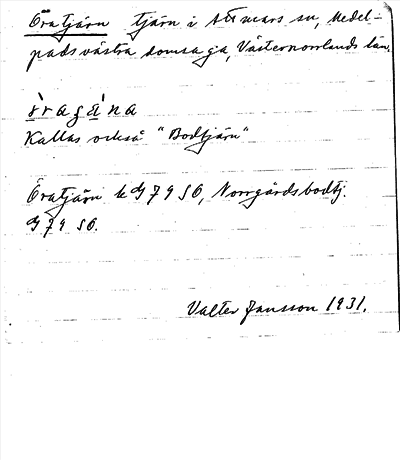 Öratjärn tjärn i Attmars sn, Medel-
pads västra domsaga, Västernorrlands län.
Kallas också "Bodtjärn"
Öratjärn k G 79 SO, Norrgårdsbodtj.
G 79 SO.
Valter Jansson 1931.